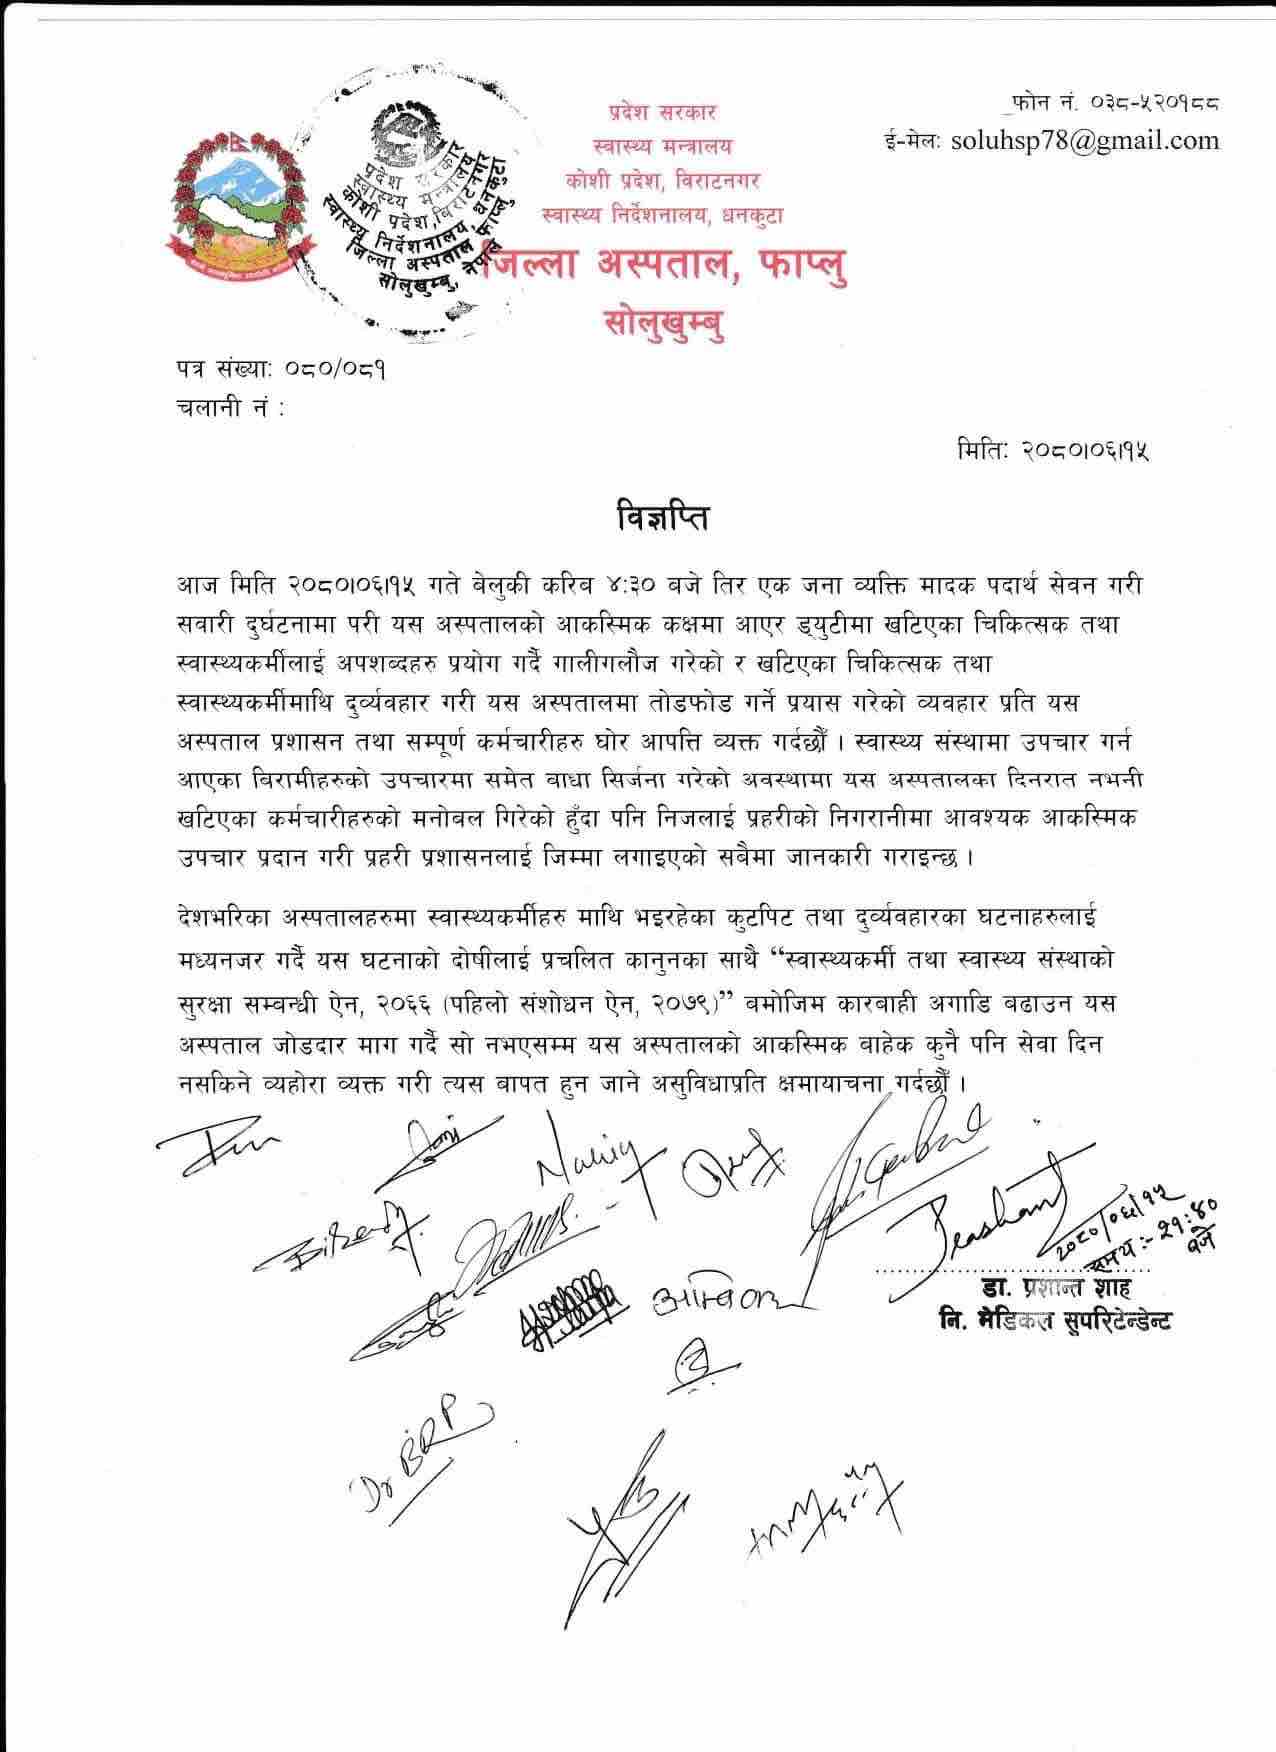 फोन नं. ०३८-५२०१८८
ई-मेल: soluhsp78@gmail.com
प्रदेश सरकार
स्वास्थ्य मन्त्रालय
कोशी प्रदेश, विराटनगर
स्वास्थ्य निर्देशनालय, धनकुटा
जिल्ला अस्पताल, फाप्लु
सोलुखुम्बु
प्रदेश सरकार
स्वास्थ्य मन्त्रालय
कोशी प्रदेश, विराटनगर
स्वास्थ्य निर्देशनालय, धनकुटा
जिल्ला अस्पताल फाप्लु
सोलुखुम्बु, नेपाल
पत्र संख्या: ०८०/०८१
चलानी नं :
मिति: २०८०।०६।१५
विज्ञप्ति
आज मिति २०८०।०६।१५ गते बेलुकी करिब ४:३० बजे तिर एक जना व्यक्ति मादक पदार्थ सेवन गरी
सवारी दुर्घटनामा परी यस अस्पतालको आकस्मिक कक्षमा आएर ड्युटीमा खटिएका चिकित्सक तथा
स्वास्थ्यकर्मीलाई अपशब्दहरु प्रयोग गर्दै गालीगलौज गरेको र खटिएका चिकित्सक तथा
स्वास्थ्यकर्मीमाथि दुर्व्यवहार गरी यस अस्पतालमा तोडफोड गर्ने प्रयास गरेको व्यवहार प्रति यस
अस्पताल प्रशासन तथा सम्पूर्ण कर्मचारीहरु घोर आपत्ति व्यक्त गर्दछौँ । स्वास्थ्य संस्थामा उपचार गर्न
आएका बिरामीहरुको उपचारमा समेत बाधा सिर्जना गरेको अवस्थामा यस अस्पतालका दिनरात नभनी
खटिएका कर्मचारीहरुको मनोबल गिरेको हुँदा पनि निजलाई प्रहरीको निगरानीमा आवश्यक आकस्मिक
उपचार प्रदान गरी प्रहरी प्रशासनलाई जिम्मा लगाइएको सबैमा जानकारी गराइन्छ ।
देशभरिका अस्पतालहरुमा स्वास्थ्यकर्मीहरु माथि भइरहेका कुटपिट तथा दुर्व्यवहारका घटनाहरुलाई
मध्यनजर गर्दै यस घटनाको दोषीलाई प्रचलित कानुनका साथै “स्वास्थ्यकर्मी तथा स्वास्थ्य संस्थाको
सुरक्षा सम्बन्धी ऐन, २०६६ (पहिलो संशोधन ऐन, २०७९)” बमोजिम कारबाही अगाडि बढाउन यस
अस्पताल जोडदार माग गर्दै सो नभएसम्म यस अस्पतालको आकस्मिक बाहेक कुनै पनि सेवा दिन
नसकिने व्यहोरा व्यक्त गरी त्यस बापत हुन जाने असुविधाप्रति क्षमायाचना गर्दछौँ ।
Prashant
२०८०/०६/१५
समय:- २१:४०
बजे
डा. प्रशान्त शाह
नि. मेडिकल सुपरिटेन्डेन्ट
Dr BRP